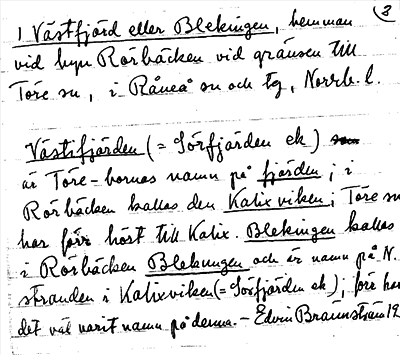 (3
1 Västfjärd eller Blekingen, hemman
vid byn Rörbäcken vid gränsen till
Töre sn, i Råneå sn och tg, Norrb. l.
Västifjärden (= Sörfjärden ek)
är Töre-bornas namn på fjärden; i
Rörbäcken kallas den Kalixviken; Töre sn
har förr hört till Kalix. Blekingen kallas
i Rörbäcken Blekungen och är namn på N.
stranden i Kalixviken (= Sörfjärden ek); förr har
det väl varit namn på denna. - Edvin Brännström 19